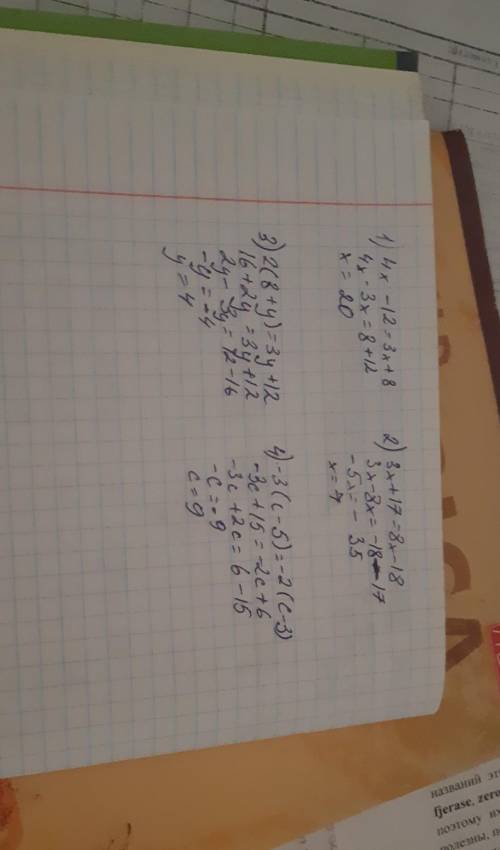 1) 4x - 12 = 3x + 8
4x - 3x = 8 + 12
x = 20
2) 3x + 17 = 8x - 18
3x - 8x = -18 - 17
-5x = - 35
x = 7
3) 2(8 + y) = 3y + 12
16 + 2y = 3y + 12
2y - 3y = 12 - 16
-y = -4
y = 4
4) -3(c - 5) = -2(c - 3)
-3c + 15 = -2c + 6
-3c + 2c = 6 - 15
-c = -9
c = 9
названий
fjerase, zero
поэтому
полезны,